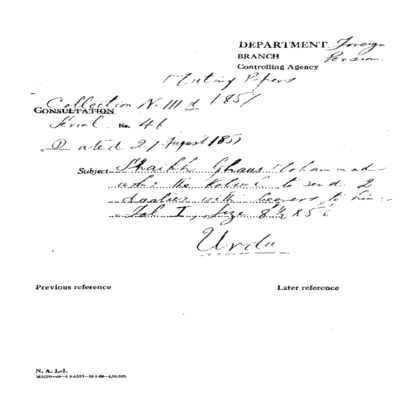 DEPARTMENT Foreign
BRANCH Persian
Controlling Agency
Mutiny Papers
Collection N. III 1857
CONSULTATION
Serial No. 46
Dated 21 August 1857
Subject Shaikh Ghaus Mohammad
asks the Kotwal to send 2
with bearers to him.
Fol I, Size 8½ X 5
Urdu
Previous reference Later reference
N. A. I.-1.